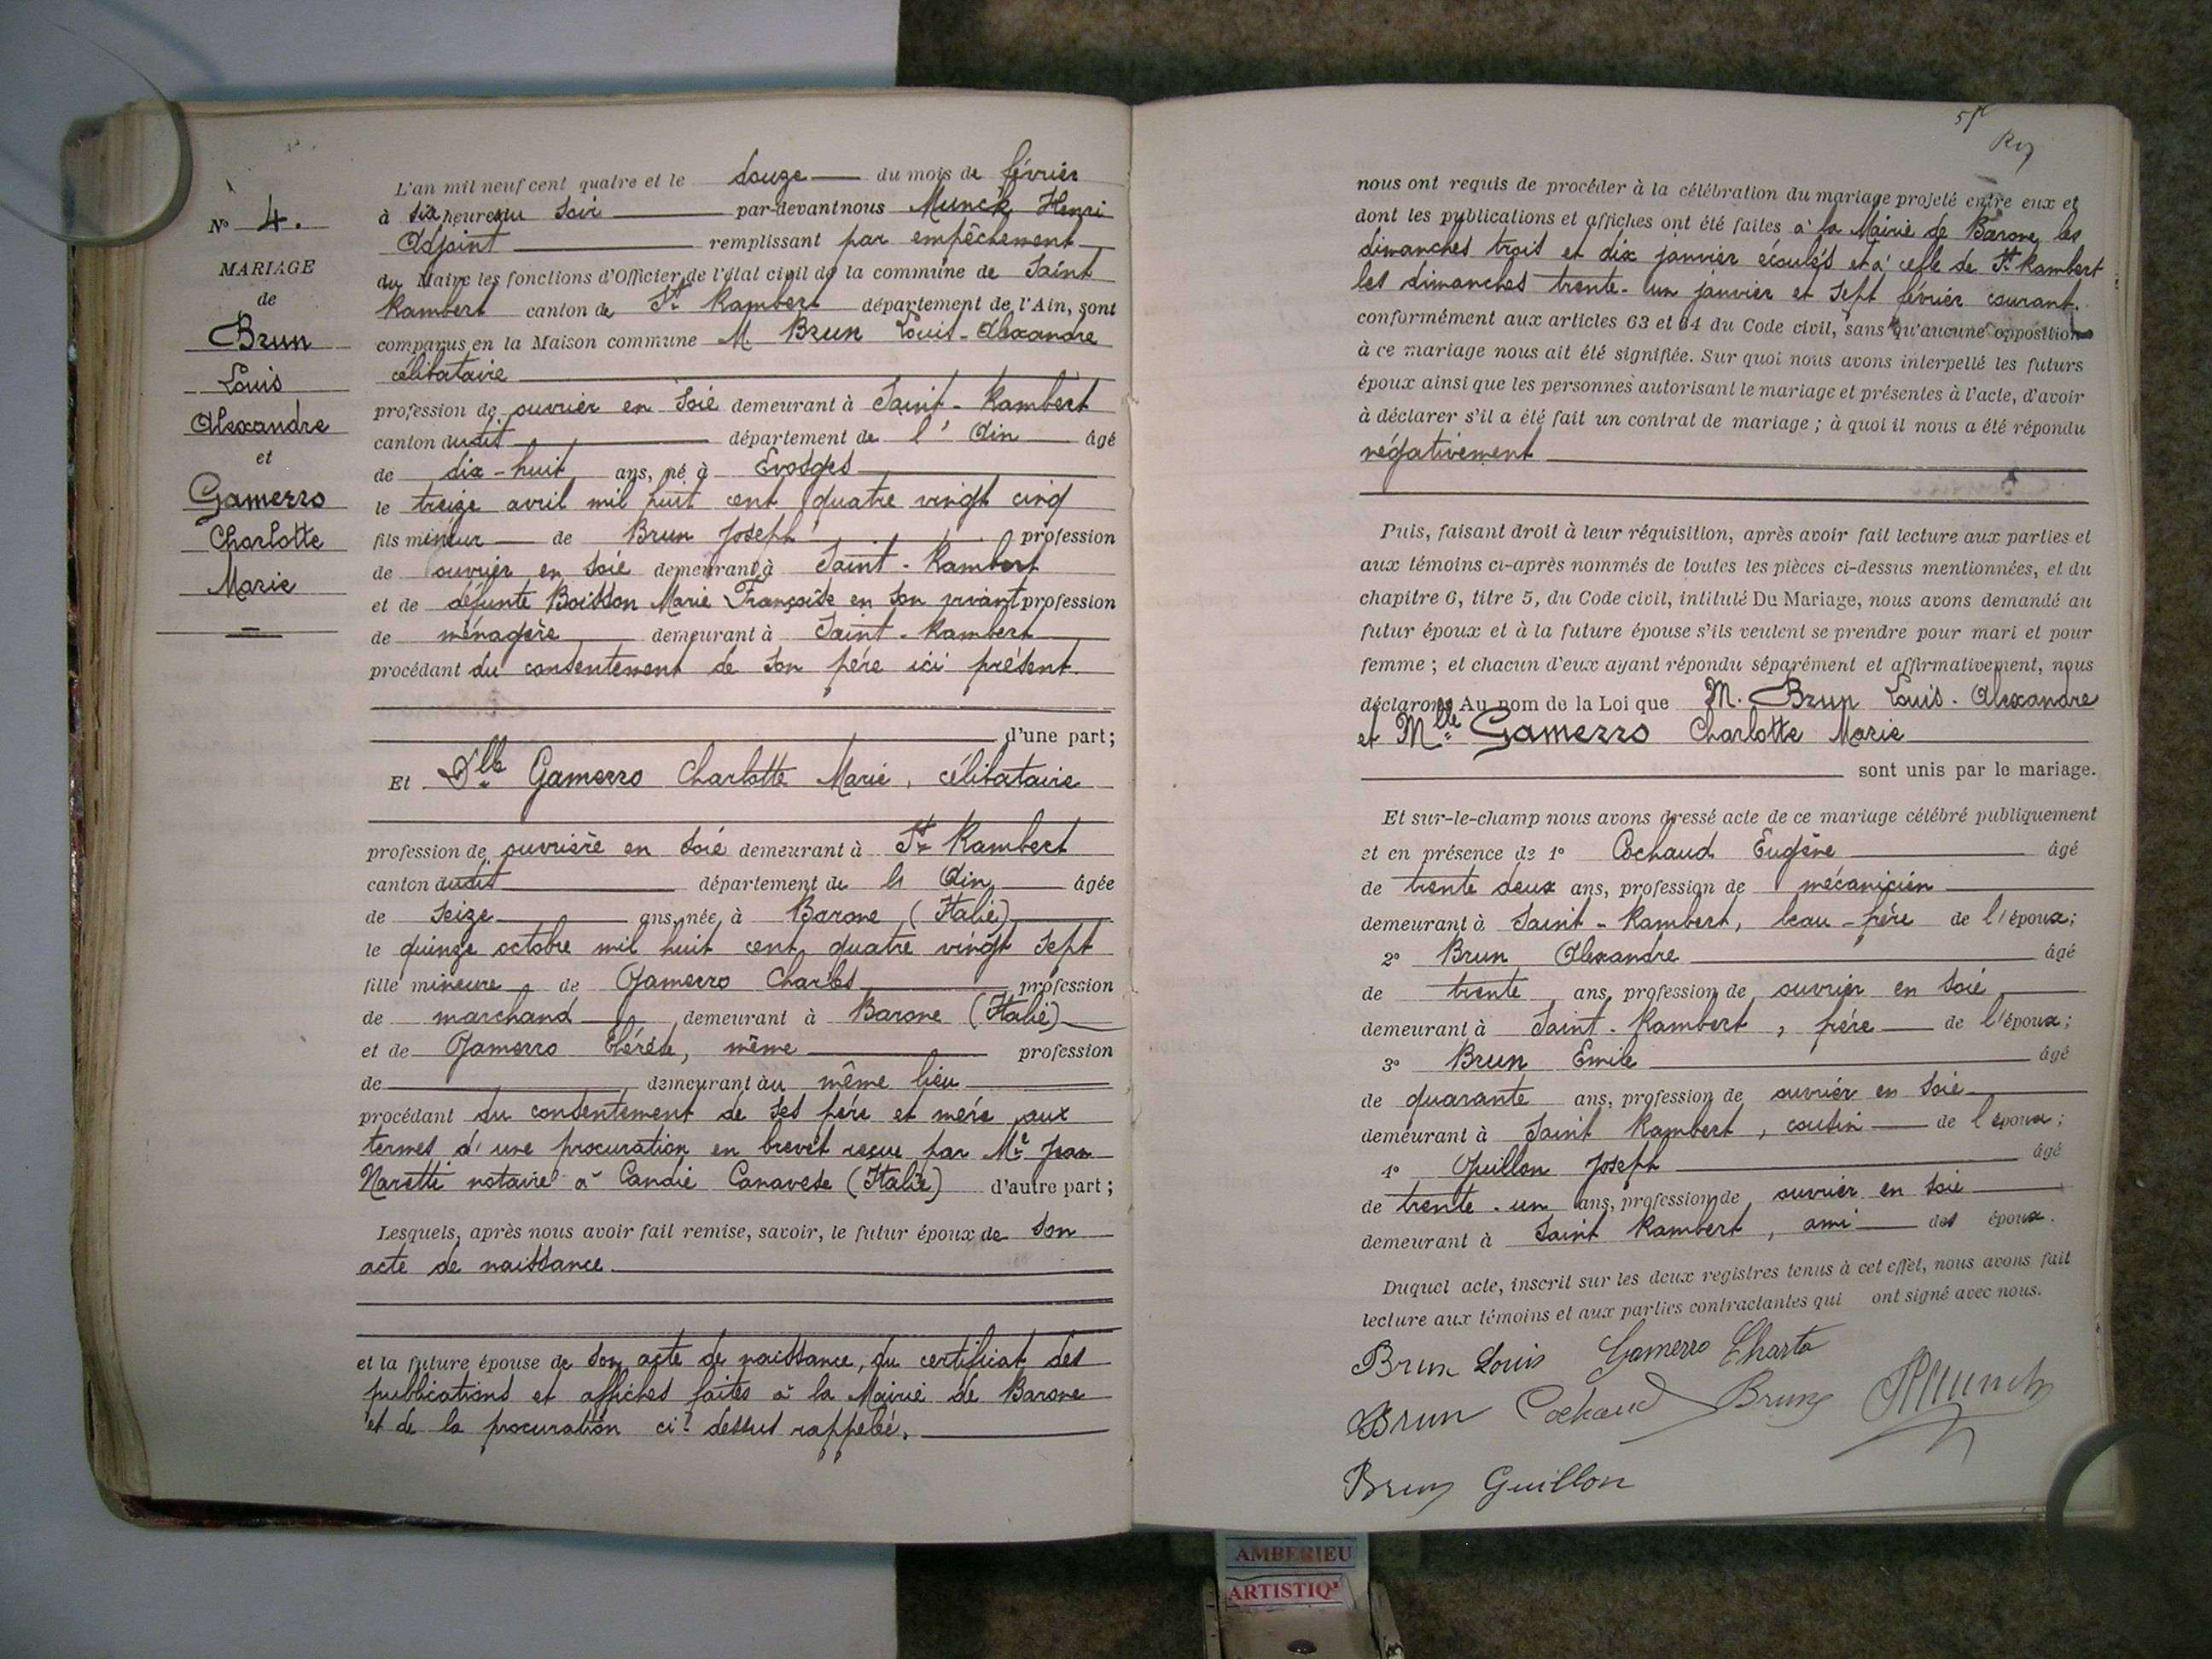 N° 4.
MARIAGE
de
Brun
Louis
Alexandre
et
Gamerro
Charlotte
Marie
L'an mil neuf cent quatre et le douze du mois de février
à six heures du soir par-devant nous Munck Henri
Adjoint remplissant par empêchement
du Maire les fonctions d'Officier de l'état civil de la commune de Saint
Rambert canton de St Rambert département de l'Ain, sont
comparus en la Maison commune M. Brun Louis-Alexandre
célibataire
profession de ouvrier en soie demeurant à Saint-Rambert
canton dudit département de l'Ain âgé
de dix-huit ans, né à Evosges
le treize avril mil huit cent quatre vingt cinq
fils mineur de Brun Joseph profession
de ouvrier en soie demeurant à Saint-Rambert
et de défunte Boisson Marie Françoise en son vivant profession
de ménagère demeurant à Saint-Rambert
procédant du consentement de son père ici présent.
d'une part;
Et Dlle Gamerro Charlotte Marie, célibataire
profession de ouvrière en soie demeurant à St Rambert
canton dudit département de l'Ain âgée
de seize ans, née à Barone (Italie)
le quinze octobre mil huit cent quatre vingt sept
fille mineure de Gamerro Charles profession
de marchand demeurant à Barone (Italie)
et de Gamerro Thérèse, même profession
de demeurant au même lieu
procédant du consentement de ses père et mère aux
termes d'une procuration en brevet reçue par Me Jean
Naretti notaire à Candie Canavese (Italie) d'autre part;
Lesquels, après nous avoir fait remise, savoir, le futur époux de son
acte de naissance.
et la future épouse de son acte de naissance, du certificat des
publications et affiches faites à la Mairie de Barone
et de la procuration ci-dessus rappelée.
nous ont requis de procéder à la célébration du mariage projeté entre eux et
dont les publications et affiches ont été faites à la Mairie de Barone les
dimanches trois et dix janvier écoulés et à celle de St Rambert
les dimanches trente-un janvier et sept février courant.
conformément aux articles 63 et 64 du Code civil, sans qu'aucune opposition
à ce mariage nous ait été signifiée. Sur quoi nous avons interpellé les futurs
époux ainsi que les personnes autorisant le mariage et présentes à l'acte, d'avoir
à déclarer s'il a été fait un contrat de mariage; à quoi il nous a été répondu
négativement
Puis, faisant droit à leur réquisition, après avoir fait lecture aux parties et
aux témoins ci-après nommés de toutes les pièces ci-dessus mentionnées, et du
chapitre 6, titre 5, du Code civil, intitulé Du Mariage, nous avons demandé au
futur époux et à la future épouse s'ils veulent se prendre pour mari et pour
femme; et chacun d'eux ayant répondu séparément et affirmativement, nous
déclarons Au nom de la Loi que M. Brun Louis-Alexandre
et Mlle Gamerro Charlotte Marie
sont unis par le mariage.
Et sur-le-champ nous avons dressé acte de ce mariage célébré publiquement
et en présence de 1° Cochaud Eugène âgé
de trente deux ans, profession de mécanicien
demeurant à Saint-Rambert, beau-frère de l'époux;
2° Brun Alexandre âgé
de trente ans, profession de ouvrier en soie
demeurant à Saint-Rambert, frère de l'époux;
3° Brun Emile âgé
de quarante ans, profession de ouvrier en soie
demeurant à Saint Rambert, cousin de l'époux;
4° Guillon Joseph âgé
de trente-un ans, profession de ouvrier en soie
demeurant à Saint Rambert, ami des époux.
Duquel acte, inscrit sur les deux registres tenus à cet effet, nous avons fait
lecture aux témoins et aux parties contractantes qui ont signé avec nous.
Brun Louis Gamerro Charta
Brun Cochaud Brun HMunck
Brun Guillon
AMBERIEU
ARTISTIQ'